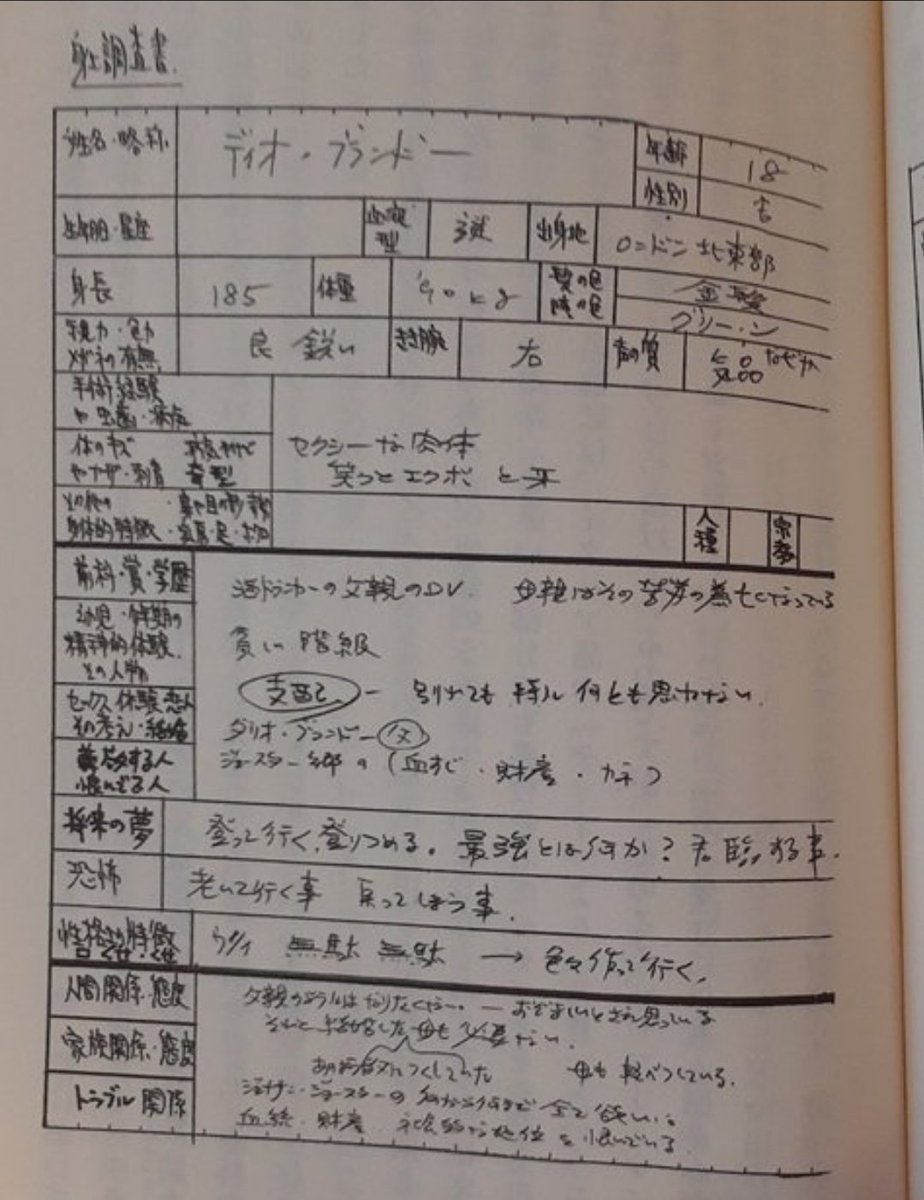 身上調査書
姓名・略称 ディオ・ブランドー 年齢 18
性別 ♂
生年月日・星座 血液型 出身地 ロンドン北東部
身長 185 体重 90kg 髪の色 瞳の色 金髪
グリーン
視力・色力 メガネの有無 良 鋭い きき腕 右 声の質
手術経験
体のキズ セクシーな肉体
ヤケ アザ・刺青 奇型 笑うとエクボと牙
その他の
身体的特徴 人種 宗教
前科・賞・学歴 酒ドランカーの父親のDV 母親はその苦労の為亡くなっている
幼児・少年期の
精神的体験 貧しい階級
その人物
セックス体験 恋人 支配 ー 別れても特に何とも思わない。
その考え・結婚 ダリオ・ブランドー 父
尊敬する人 ジョースター卿の(血すじ・財産・
恨んでる人
将来の夢 登って行く、登りつめる。最強とは何か?君臨する事。
恐怖 老いて行く事 戻ってしまう事。
性格的特徴 無駄 無駄 → 色々作って行く。
人間関係・態度 父親のようにはなりたくない。ー おぞましいとさえ思っている
家族関係・態度 そんな 結婚した母も 必要ない。
母も軽べつしている。
トラブル関係 ジョナサン・ジョースターの 全て欲しい。
血統・財産・社会的な地位を恨んでいる